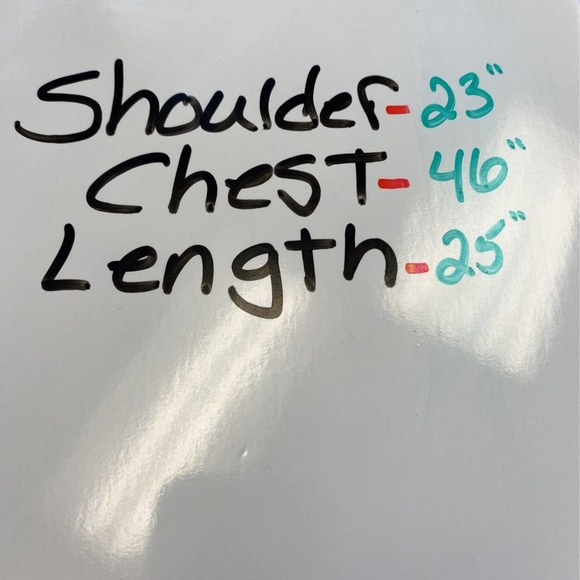 Shoulder-23"
Chest-46"
Length-25"